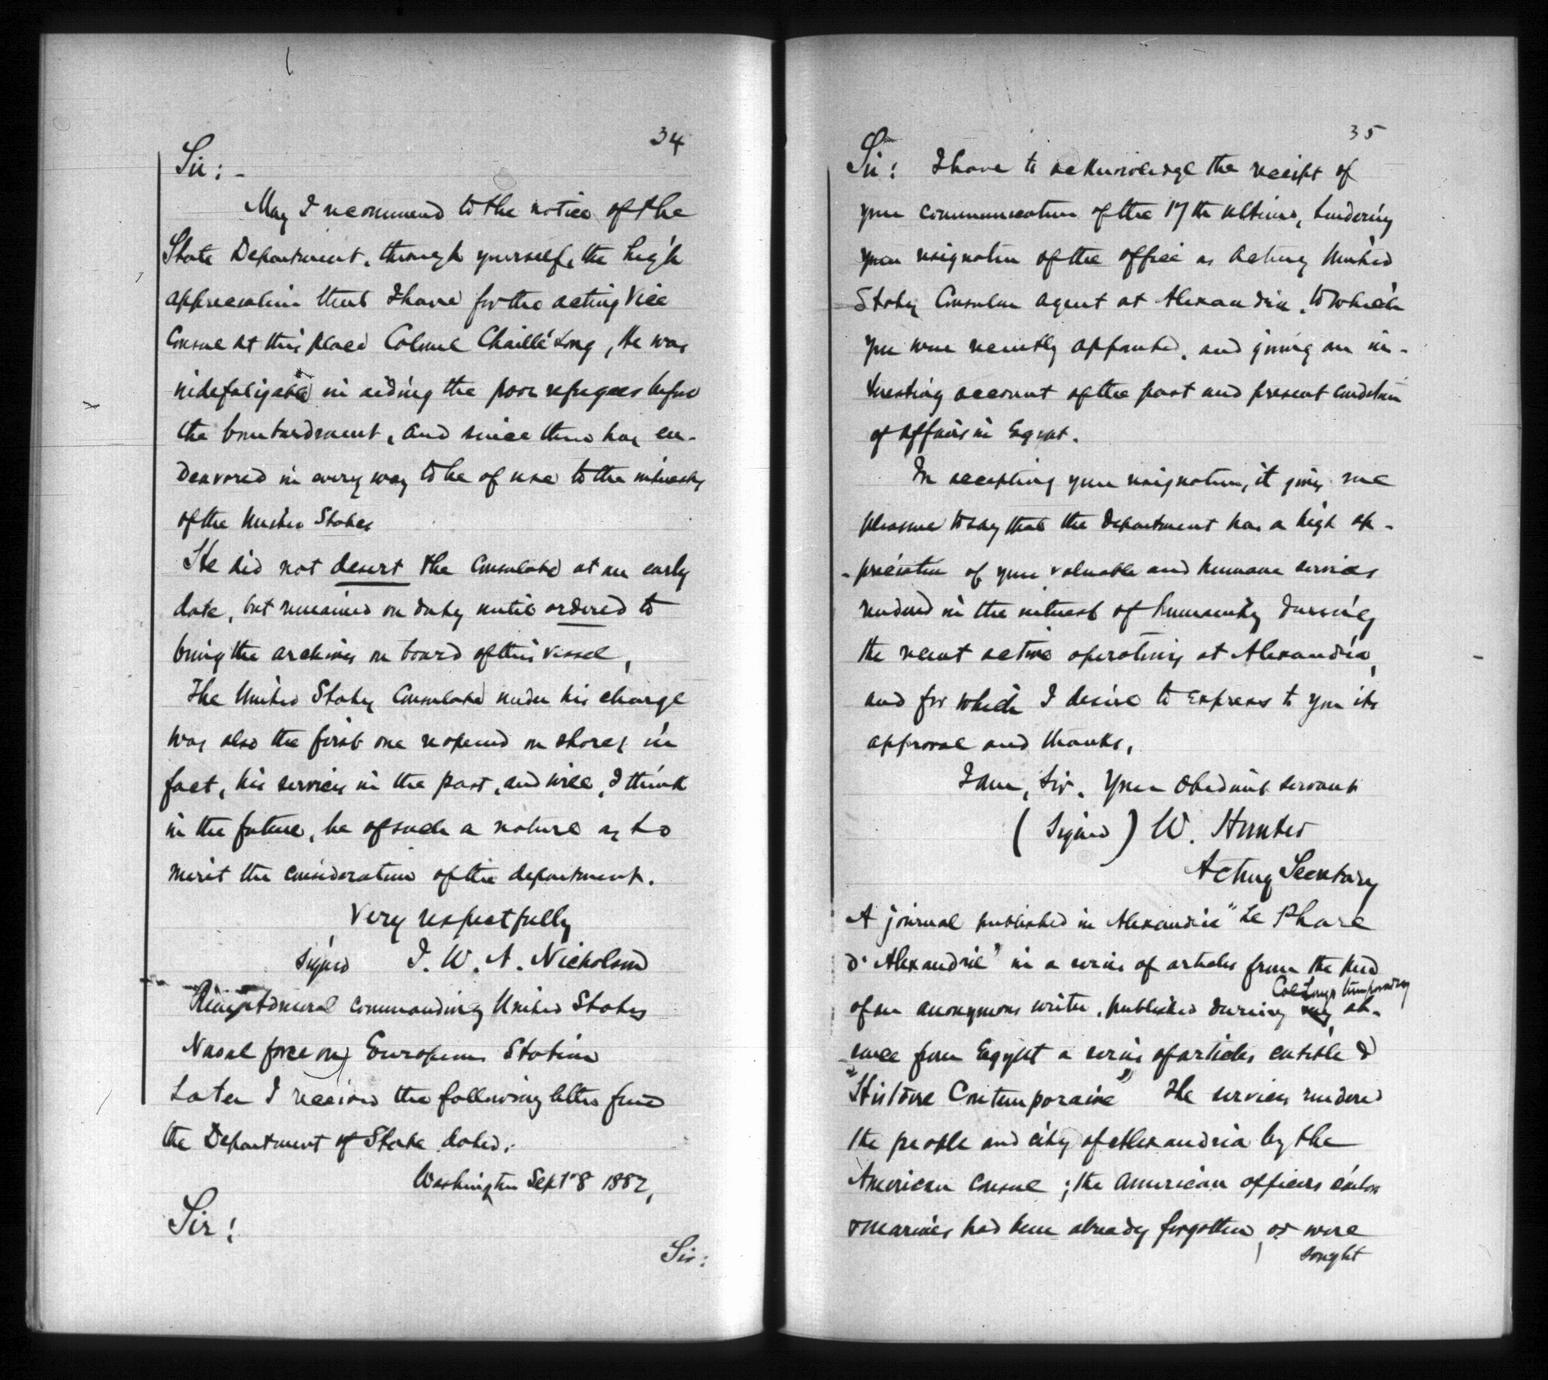 34
Sir: -
May I recommend to the notice of the
State Department, through yourself, the high
appreciation that I have for the acting Vice
Consul at this place Colonel Chaillé Long, He was
indefatigable in aiding the poor refugees before
the bombardment, and since then has en-
deavored in every way to be of use to the interests
of the United States
He did not desert the Consulate at an early
date, but remained on duty until ordered to
bring the archives on board of this vessel,
The United States Consulate under his charge
was also the first one reopened on shore; in
fact, his services in the past, and will, I think
in the future, be of such a nature as to
merit the consideration of the department.
Very respectfully
signed J. W. A. Nicholson
Rear Admiral commanding United States
Naval force on European Station
Later I received the following letter from
the Department of State dated:
Washington Sept 8 1882,
Sir:
Sir:
35
Sir: I have to acknowledge the receipt of
your communication of the 17th ultimo, tendering
your resignation of the office as Acting United
States Consular agent at Alexandria, to which
you were recently appointed, and giving an in-
teresting account of the past and present condition
of affairs in Egypt.
In accepting your resignation, it gives me
pleasure to say that the department has a high ap-
-preciation of your valuable and humane services
rendered in the interest of humanity during
the recent active operations at Alexandria,
and for which I desire to express to you its
approval and thanks,
I am, Sir, Your Obedient servant
(Signed) W. Hunter
Acting Secretary
A journal published in Alexandria "Le Phare
d'Alexandrie" in a series of articles from the pen
Col Longs temporary
of an anonymous writer, published during my ab-
-sence from Egypt a series of articles entitled
"Histoire Contemporaine" The services rendered
the people and city of Alexandria by the
American consul; the American officers sailors
& marines had been already forgotten, or were
sought